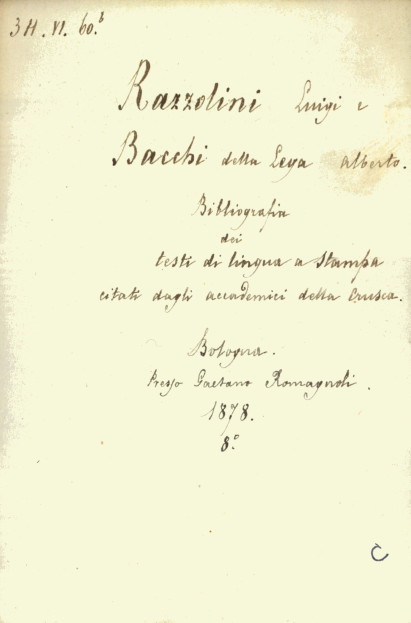 3 H. VI. 60.b
Razzolini Luigi e
Bacchi della Lega Alberto.
Bibliografia
dei
testi di lingua a stampa
citati dagli accademici della Crusca.
Bologna.
Presso Gaetano Romagnoli.
1878.
8.º
C